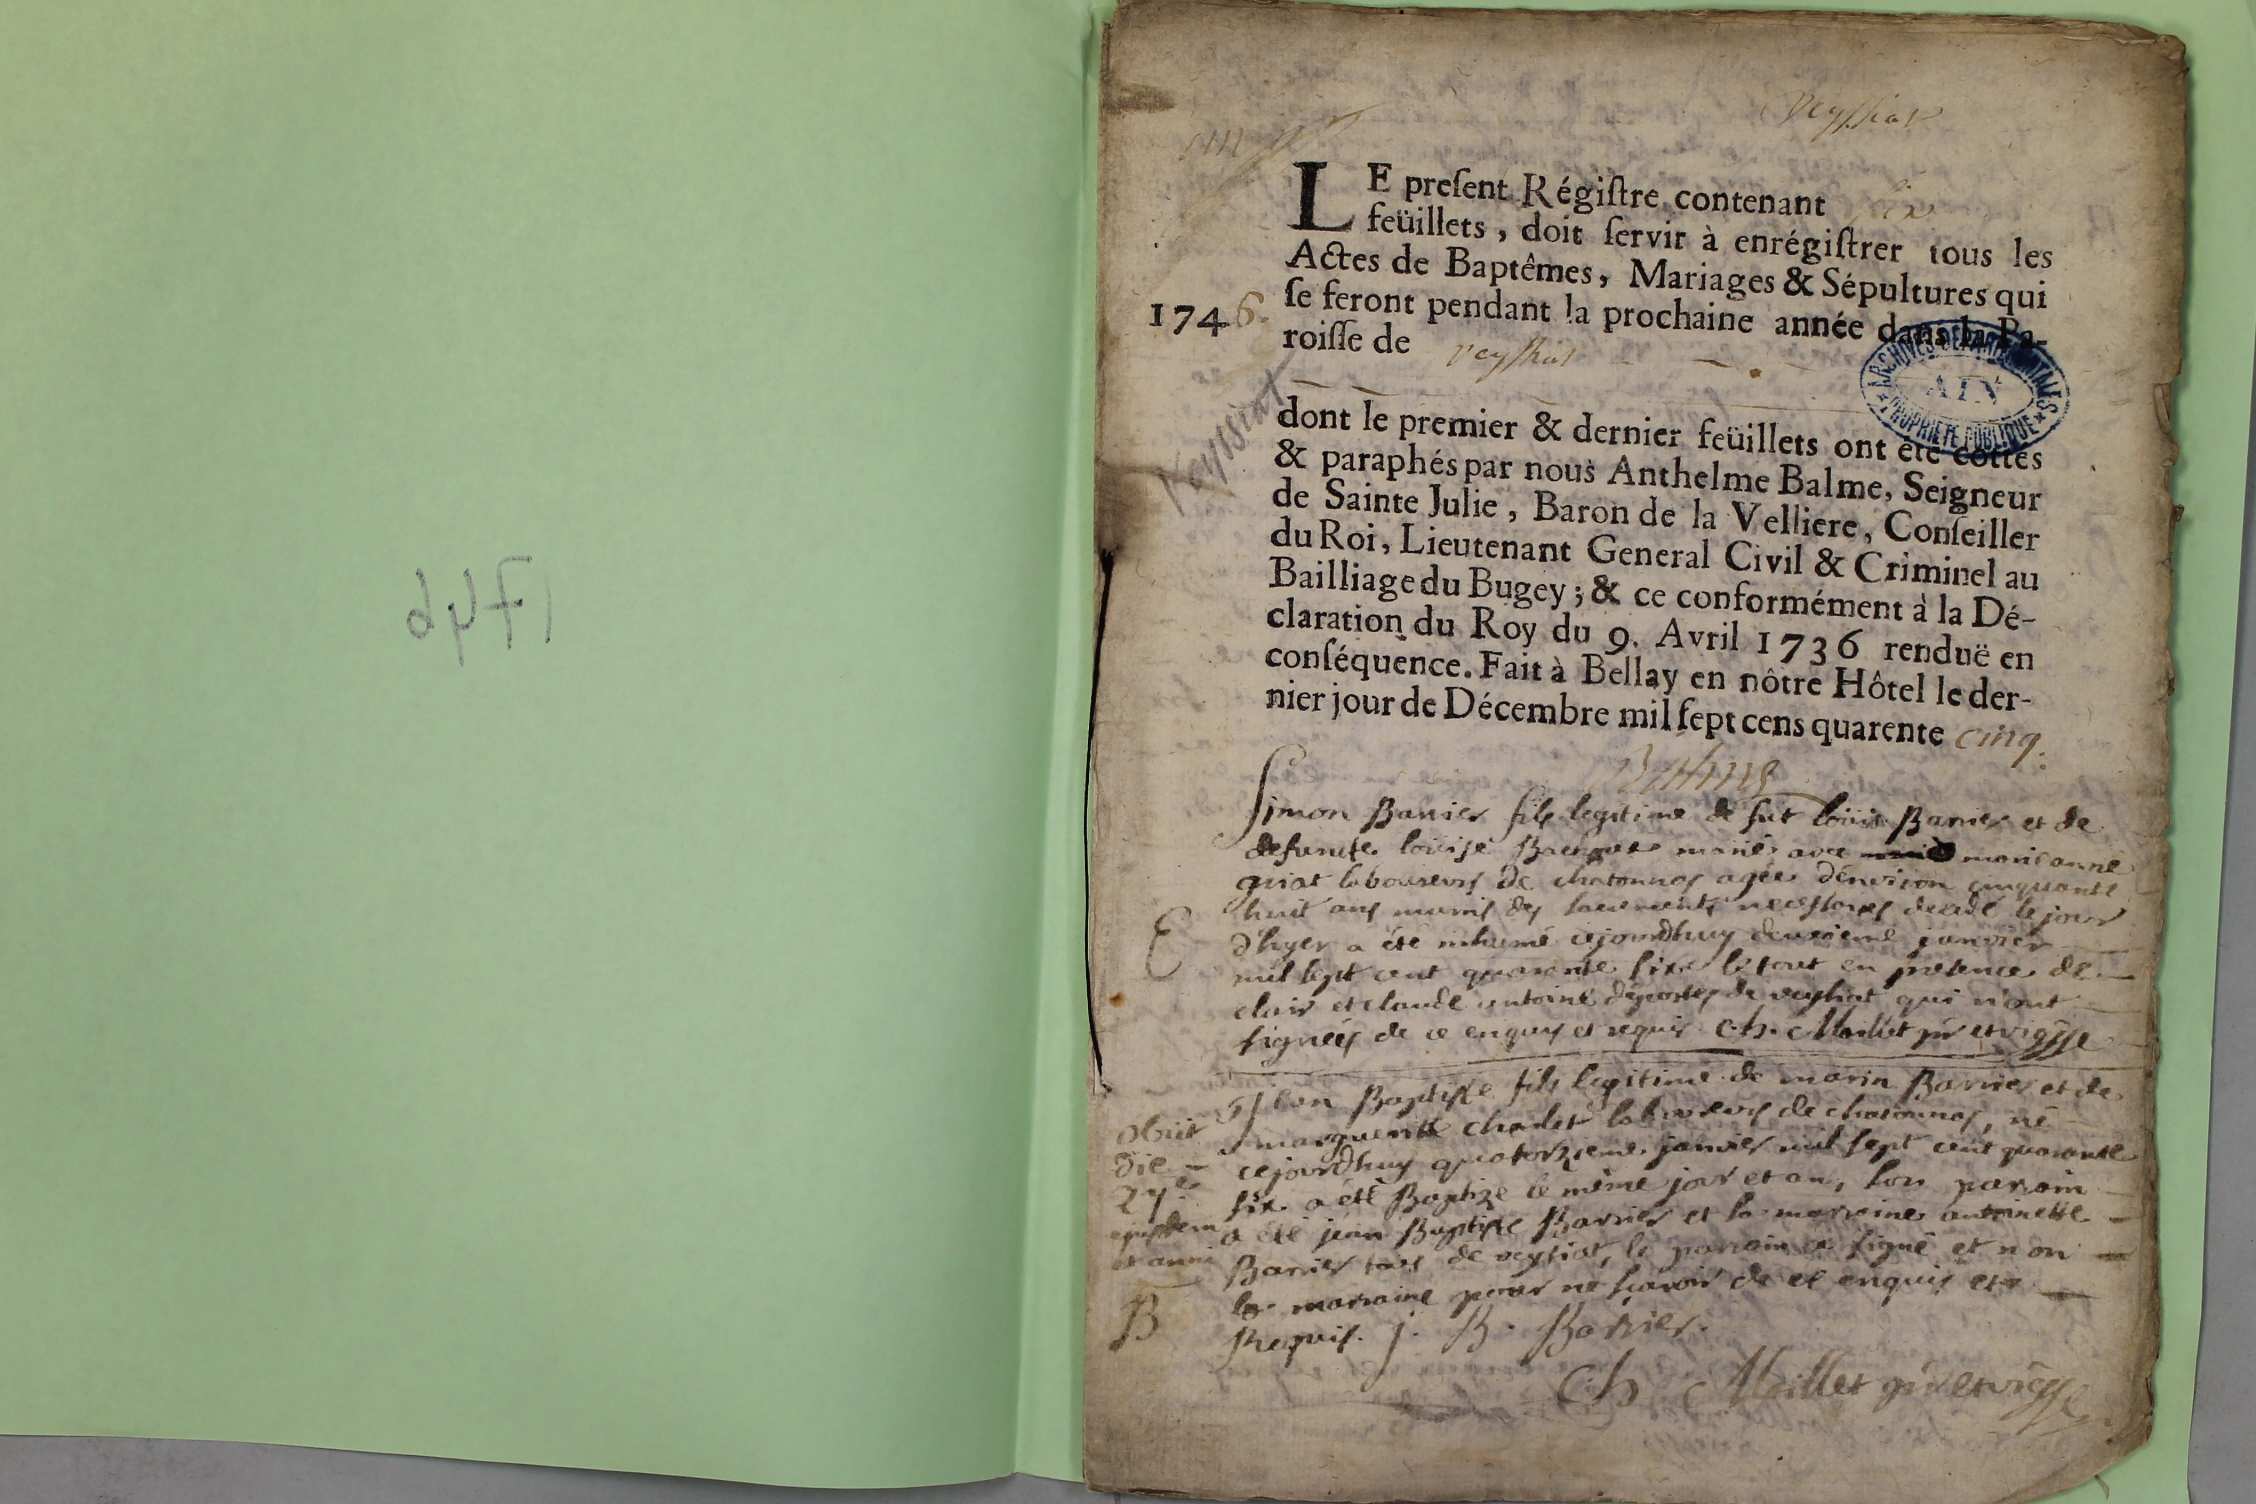 1746
Veyssiat
LE preſent Régiſtre contenant six
feüillets, doit ſervir à enrégiſtrer tous les
Actes de Baptêmes, Mariages & Sépultures qui
ſe feront pendant la prochaine année dans la Pa-
1746.
roiſſe de veyssiat
ARCHIVES DÉPARTEMENTALES
AIN
PROPRIÉTÉ PUBLIQUE
Veyssiat
dont le premier & dernier feüillets ont été cottés
& paraphés par nous Anthelme Balme, Seigneur
de Sainte Julie, Baron de la Velliere, Conſeiller
du Roi, Lieutenant General Civil & Criminel au
Bailliage du Bugey; & ce conformément à la Dé-
claration du Roy du 9. Avril 1736 renduë en
conſéquence. Fait à Bellay en nôtre Hôtel le der-
nier jour de Décembre mil ſept cens quarente cinq.
Simon Barrier fils legitime de fut loüis Barrier et de
defuncte loüise marié avec marie anne
laboureurs de chatonnas agée d'environ cinquante
huit ans munis des sacrements necessaires decedé le jour
d'hyer a été inhumé cejourdhuy deuxieme janvier
E
mil sept cent quarante six le tout en presence de
clair et claude antoine de veysiat qui n'ont
signéés de ce enquis et requis. Ch. Maillet
jean Baptiste fils legitime de marin Barrier et de
margueritte laboureurs de chatonnas, né
cejourdhuy quatorzieme janvier mil sept cent quarante
six a été Baptizé le même jour et an, son parain
a été jean Baptiste Barrier et la marraine antoinette
Barrier tous de veysiat, le parrain a signé et non
la marraine pour ne sçavoir de ce enquis et
Requis. j. B. Barrier.
obiit
die
27e
ejusdem
et anni
B
Ch Maillet